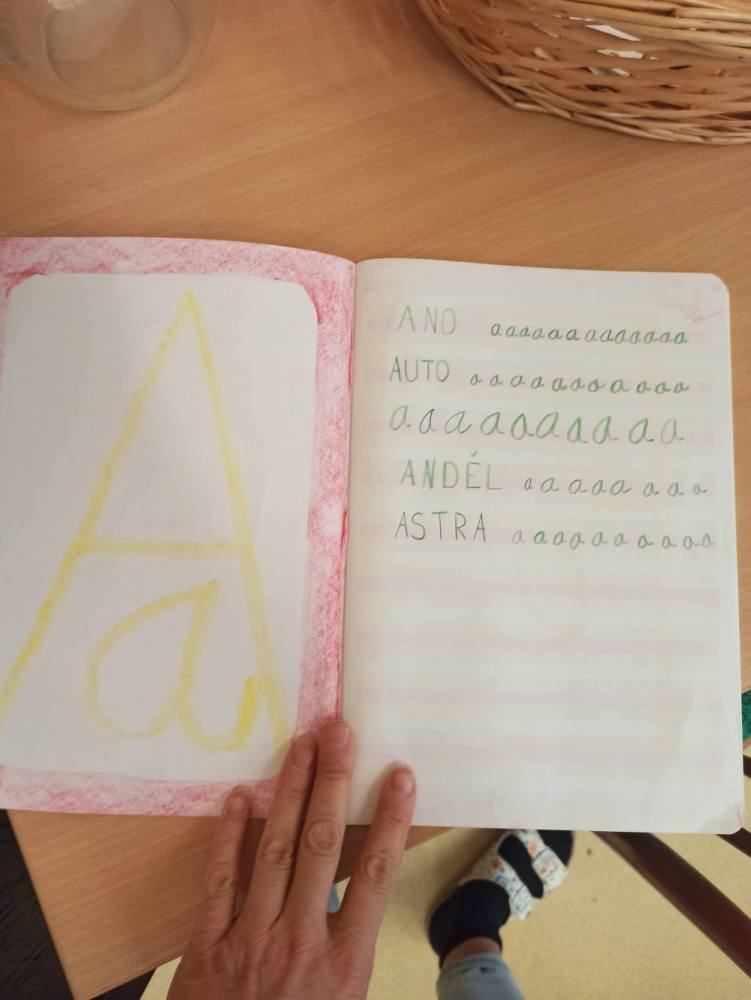 A
a
ANO aaaaaaaaaaaaa
AUTO a a a a a a a a a a a
a a a a a a a a a a
ANDĚL a a a a a a a a
ASTRA a a a a a a a a a a